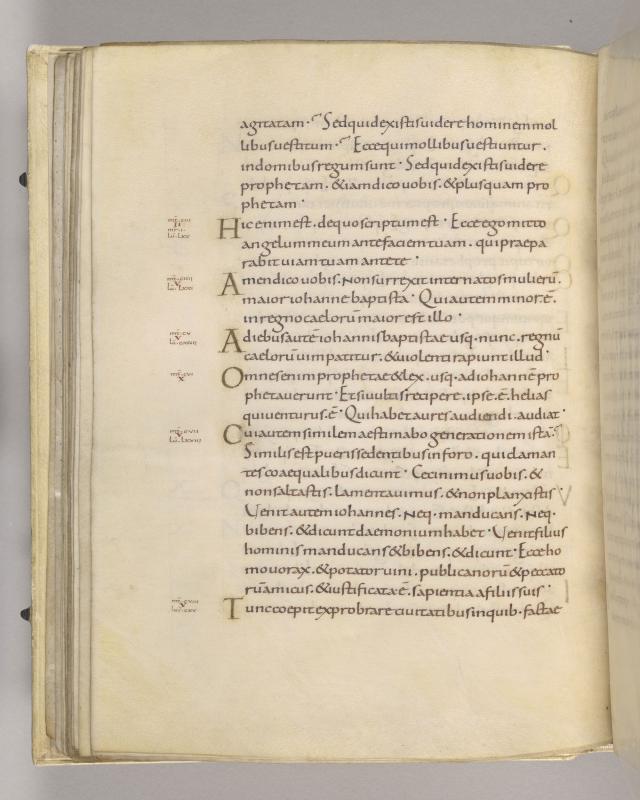 agitatam · Sedquidexistisuiderehominemmol
libusuestitum · Eccequimollibusuestiuntur ·
indomibusregumsunt · Sedquidexistisuidere
prophetam · &iamdicouobis · &plusquam pro
phetam ·
Hicenimest · dequoscriptumest · Ecceegomitto
angelummeumantefaciemtuam · quipraepa
rabituiamtuamantete ·
Amendicouobis · Nonsurrexitinternatosmulierū ·
maioriohannebaptista · Quiautemminorē ·
inregnocaelorūmaiorestillo ·
Adiebusautēiohannisbaptistaeusq · nunc · regnū
caelorūuimpatitur · &uiolentirapiuntillud ·
Omnesenimprophetae&lex · usq · adiohannēpro
phetauerunt · Etsiuultisrecipere · ipse · ē · helias
quiuenturus · ē · Quihabetauresaudiendi · audiat ·
Cuiautemsimilemaestimabogenerationemistā ·
Similisestpuerissedentibusinforo · quiclaman
tescoaequalibusdicunt · Cecinimusuobis · &
nonsaltastis · lamentauimus · &nonplanxistis ·
Uenitautemiohannes · Neq · manducans · Neq ·
bibens · &dicuntdaemoniumhabet · Uenitfilius
hominismanducans&bibens · &dicunt · Ecceho
mouorax · &potatoruini · publicanorū&peccato
rūamicus · &iustificataē · sapientiaafiliissuis ·
Tunccoepitexprobrareciuitatibusinquib · factae